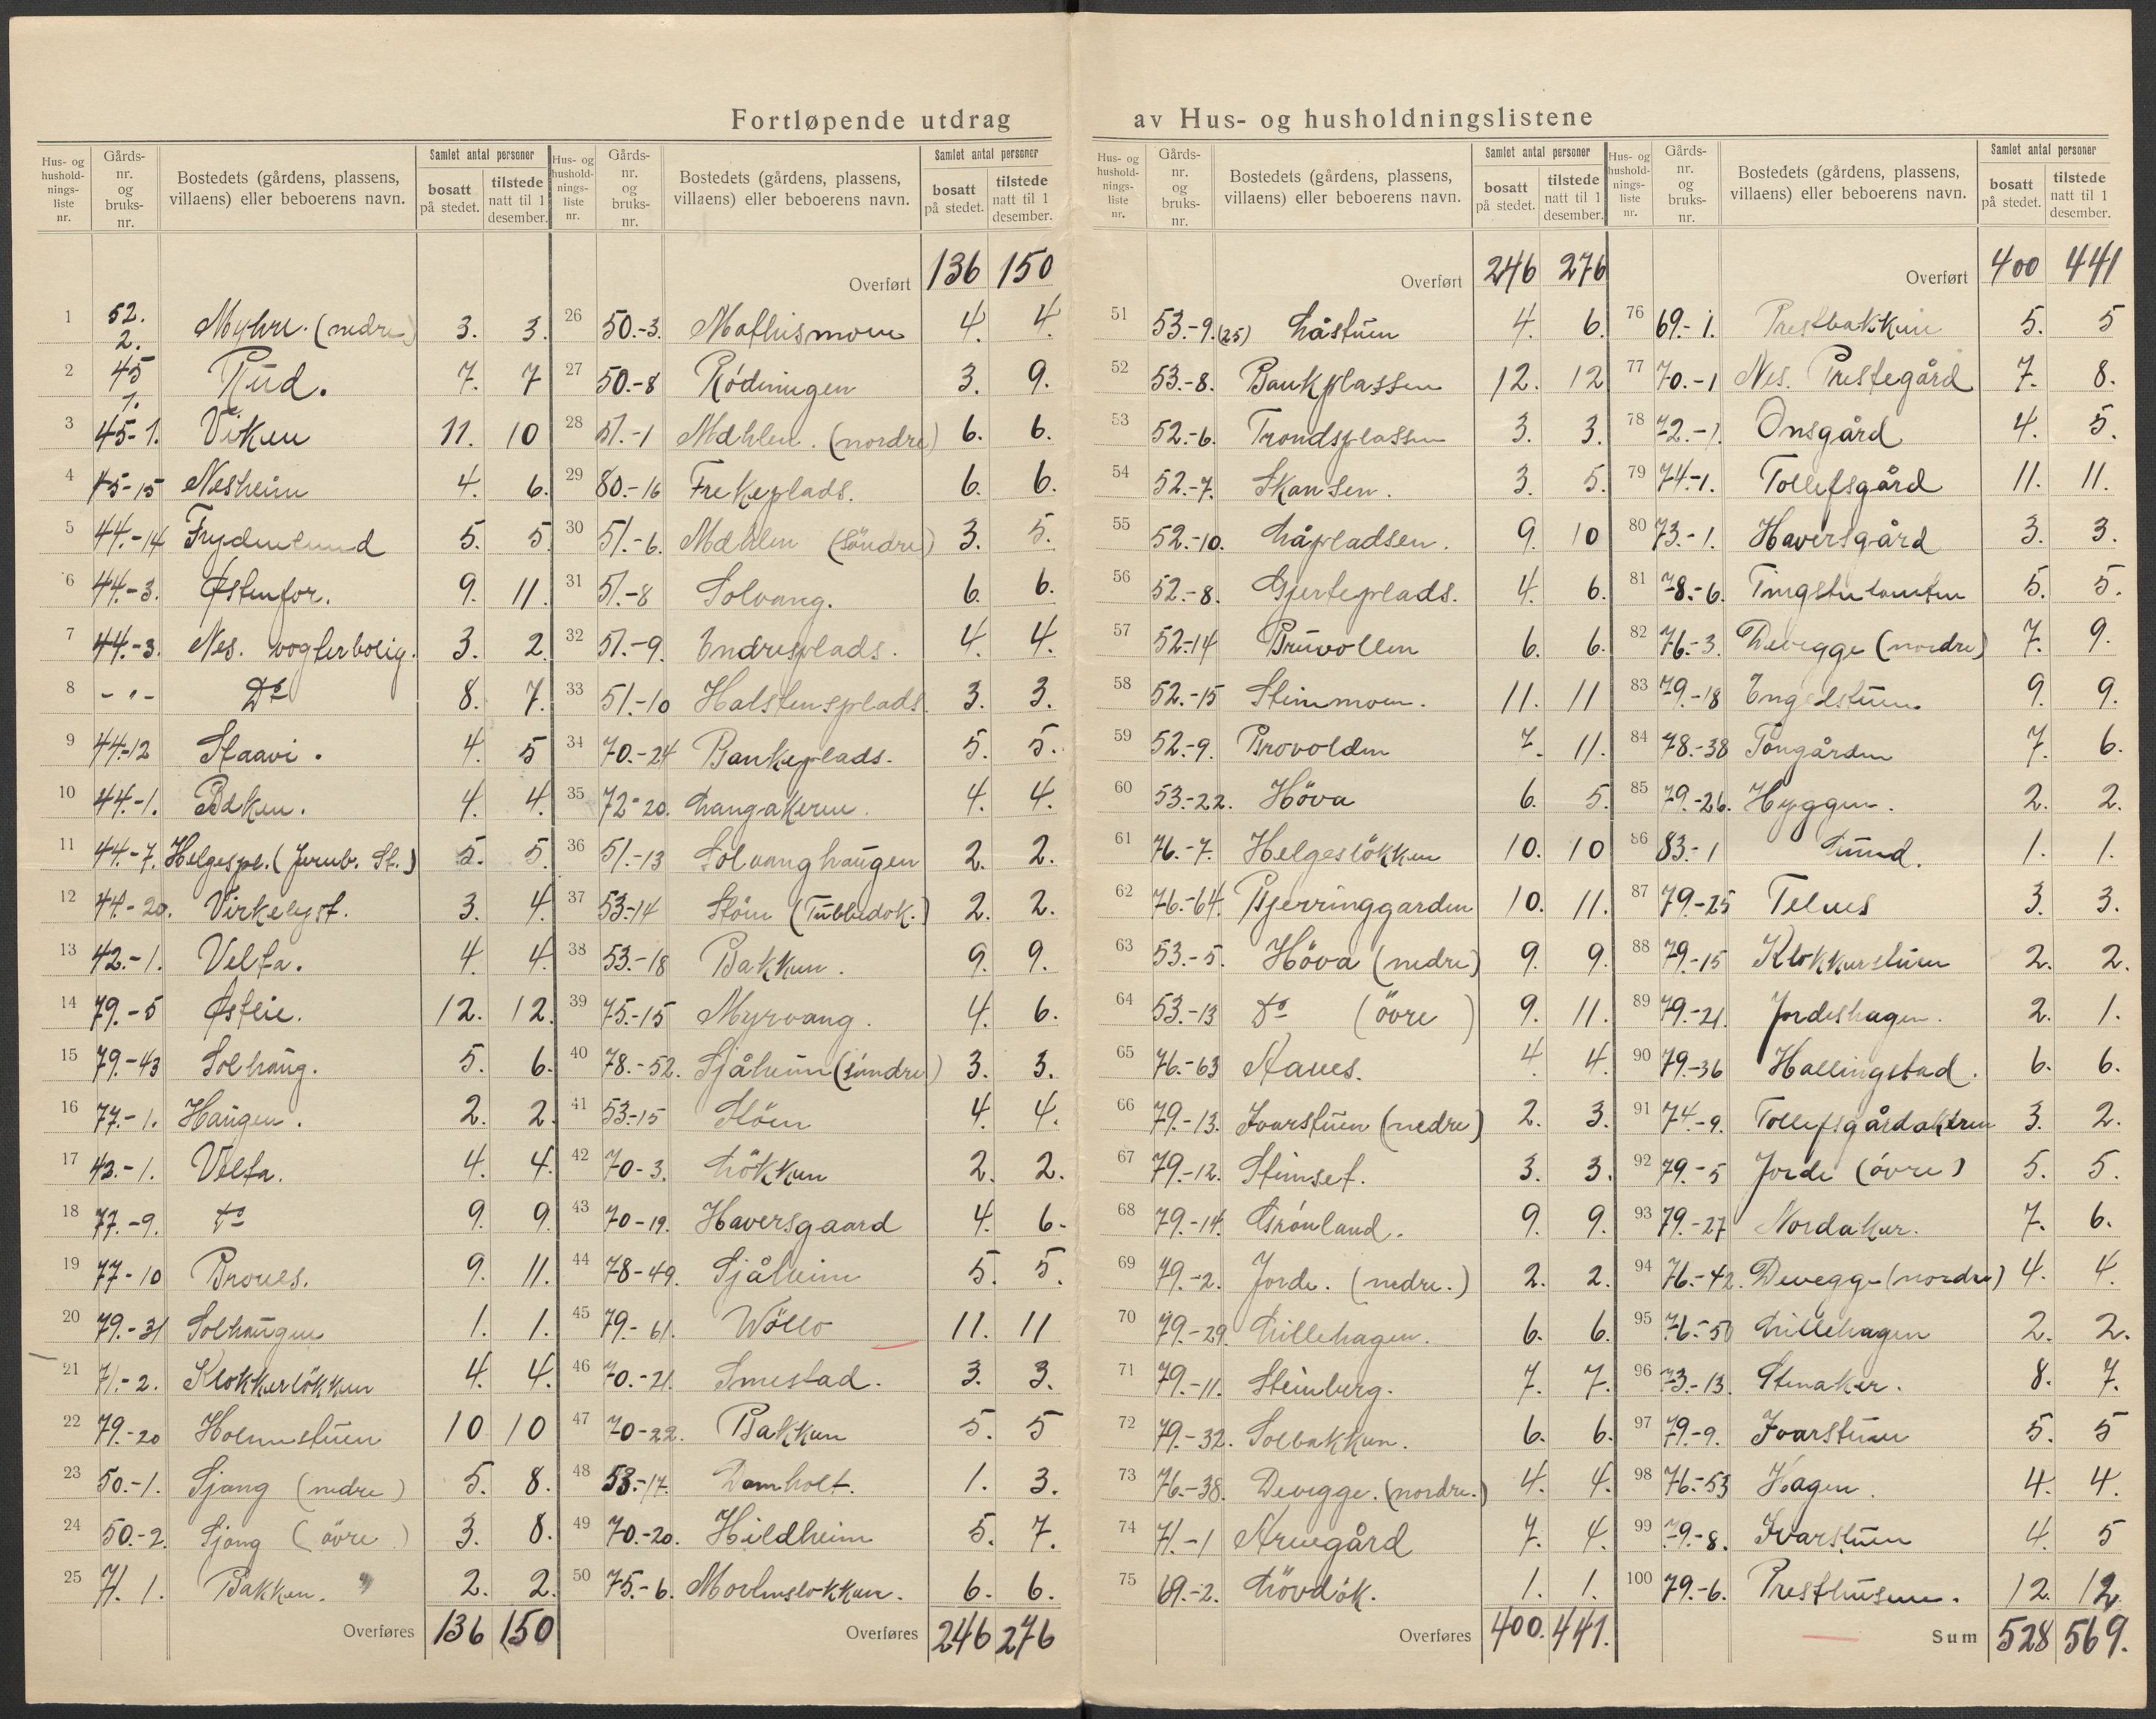 Fortløpende utdrag av Hus- og husholdningslistene
Hus- og husholdningsliste nr. Gårds- nr. og bruks- nr. Bostedets (gårdens, plassens, villaens) eller beboerens navn. Samlet antal personer bosatt på stedet. tilstede natt til 1 desember.
1 52. 2. Myhre. (nedre) 3. 3.
2 45 1. Rud. 7. 7
3 45-1. Viken 11. 10
4 45-15 Nesheim 4. 6.
5 44.-14 Frydenlund 5. 5
6 44.-3. Østenfor. 9. 11.
7 44.-3. Nes. vogterbolig. 3. 2
8 - " - Do 8. 7.
9 44.-12 Staavi. 4. 5
10 44.-1. Bækken. 4. 4.
11 44.-7. Helgespl. (Jernb. St.) 5. 5.
12 44-20. Virkelyst. 3. 4.
13 42.-1. Velta. 4. 4.
14 79.-5 Østlie. 12. 12.
15 79.-43 Solhaug. 5. 6.
16 77.-1. Haugen. 2. 2
17 42.-1. Velta. 4. 4.
18 77.-9. Do 9. 9
19 77-10 Broves. 9. 11.
20 79.-31 Solhaugen 1. 1.
21 71.-2. Klokkerlökken 4. 4.
22 79.-20 Holmestuen 10 10
23 50.-1. Sjong (nedre) 5. 8.
24 50.-2. Sjong (övre) 3. 8.
25 71. 1. Bakken. " 2. 2.
Overføres 136 150
Hus- og husholdningsliste nr. Gårds- nr. og bruks- nr. Bostedets (gårdens, plassens, villaens) eller beboerens navn. Samlet antal personer bosatt på stedet. tilstede natt til 1 desember.
Overført 136 150
26 50.-3. Mathismoen 4. 4.
27 50.-8 Rödningen 3. 9.
28 51.-1 Mæhlen. (nordre) 6. 6.
29 80.-16 Frekeplads. 6. 6.
30 51.-6. Mæhlen (Söndre) 3. 5.
31 51.-8 Solvang. 6. 6.
32 51.-9. Endresplads. 4. 4.
33 51.-10 Halstensplads. 3. 3.
34 70.-24 Bankeplads. 5. 5.
35 72-20. Langakeren. 4. 4.
36 51.-13 Solvanghaugen 2. 2.
37 53-14 Stöen (Tubbedok.) 2. 2.
38 53.-18 Bakken. 9. 9.
39 75.-15 Myrvang. 4. 6.
40 78.-52. Sjåheim (söndre) 3. 3.
41 53.-15 Stöen 4. 4.
42 70-3. Lökken 2. 2.
43 70-19. Haversgaard 4. 6.
44 78-49. Sjåheim 5. 5.
45 79.-61. Wöllo 11. 11
46 70.-21. Smestad. 3. 3.
47 70-22. Bakken 5. 5
48 53.-17. Domholt. 1. 3.
49 70.-20. Hildheim 5. 7.
50 75.-6. Mortenslökken. 6. 6.
Overføres 246 276
Hus- og husholdningsliste nr. Gårds- nr. og bruks- nr. Bostedets (gårdens, plassens, villaens) eller beboerens navn. Samlet antal personer bosatt på stedet. tilstede natt til 1 desember.
Overført 246 276
51 53.-9. (25) Låstuen 4. 6.
52 53.-8. Bankplassen 12. 12
53 52.-6. Trondsplassen 3. 3.
54 52.-7. Skansen. 3. 5.
55 52.-10. Låpladsen. 9. 10
56 52.-8. Gjerteplads. 4. 6.
57 52.-14 Bruvollen 6. 6.
58 52.-15 Stenmoen. 11. 11
59 52.-9. Brovolden 7. 11.
60 53.-22. Höva 6. 5.
61 76.-7. Helgeslökken 10. 10
62 76.-64. Bjerringgarden 10. 11.
63 53.-5. Höva (nedre) 9. 9.
64 53.-13 Do (övre) 9. 11.
65 76.-63 Aanes. 4. 4.
66 79.-13. Ivarstuen (nedre) 2. 3.
67 79.-12. Stenset. 3. 3.
68 79.-14. Grönland. 9. 9.
69 79.-2. Jorde. (nedre.) 2. 2.
70 79.-29. Lillehagen. 6. 6.
71 79.-11. Steinberg. 7. 7.
72 79.-32. Solbakken. 6. 6.
73 76.-38. Devegge. (nordre.) 4. 4.
74 71.-1 Arnegård 7. 4.
75 69.-2. Lövdök. 1. 1.
Overføres 400. 441.
Hus- og husholdningsliste nr. Gårds- nr. og bruks- nr. Bostedets (gårdens, plassens, villaens) eller beboerens navn. Samlet antal personer bosatt på stedet. tilstede natt til 1 desember.
Overført 400 441
76 69.-1. Prestbakken 5. 5
77 70.-1 Nes. Prestegård 7. 8.
78 72.-1. Onsgård 4. 5.
79 74.-1. Tollefsgård 11. 11.
80 73.-1. Haversgård 3. 3.
81 78.-6. Tingstutomten 5. 5.
82 76.-3. Devegge (nordre) 7. 9.
83 79.-18 Engelstuen. 9. 9.
84 78.-38 Tongården 7. 6.
85 79.-26. Hyggen. 2. 2.
86 83.-1 Lund. 1. 1.
87 79.-25 Telnes 3. 3.
88 79.-15 Klokkerstuen 2. 2.
89 79.-21. Jordeshagen. 2. 1.
90 79.-36 Hallingstad. 6. 6.
91 74.-9. Tollefsgårdakeren 3. 2.
92 79.-5 Jorde (övre) 5. 5.
93 79.-27 Nordaker. 7. 6.
94 76.-42. Devegge (nordre) 4. 4.
95 76.-50 Lillehagen 2. 2.
96 73.-13. Stenaker. 8. 7.
97 79.-9. Ivarstuen 5. 5
98 76.-53 Hagen. 4. 4.
99 79.-8. Ivarstuen 4. 5
100 79.-6. Presthusene. 12. 12
Sum 528 569.